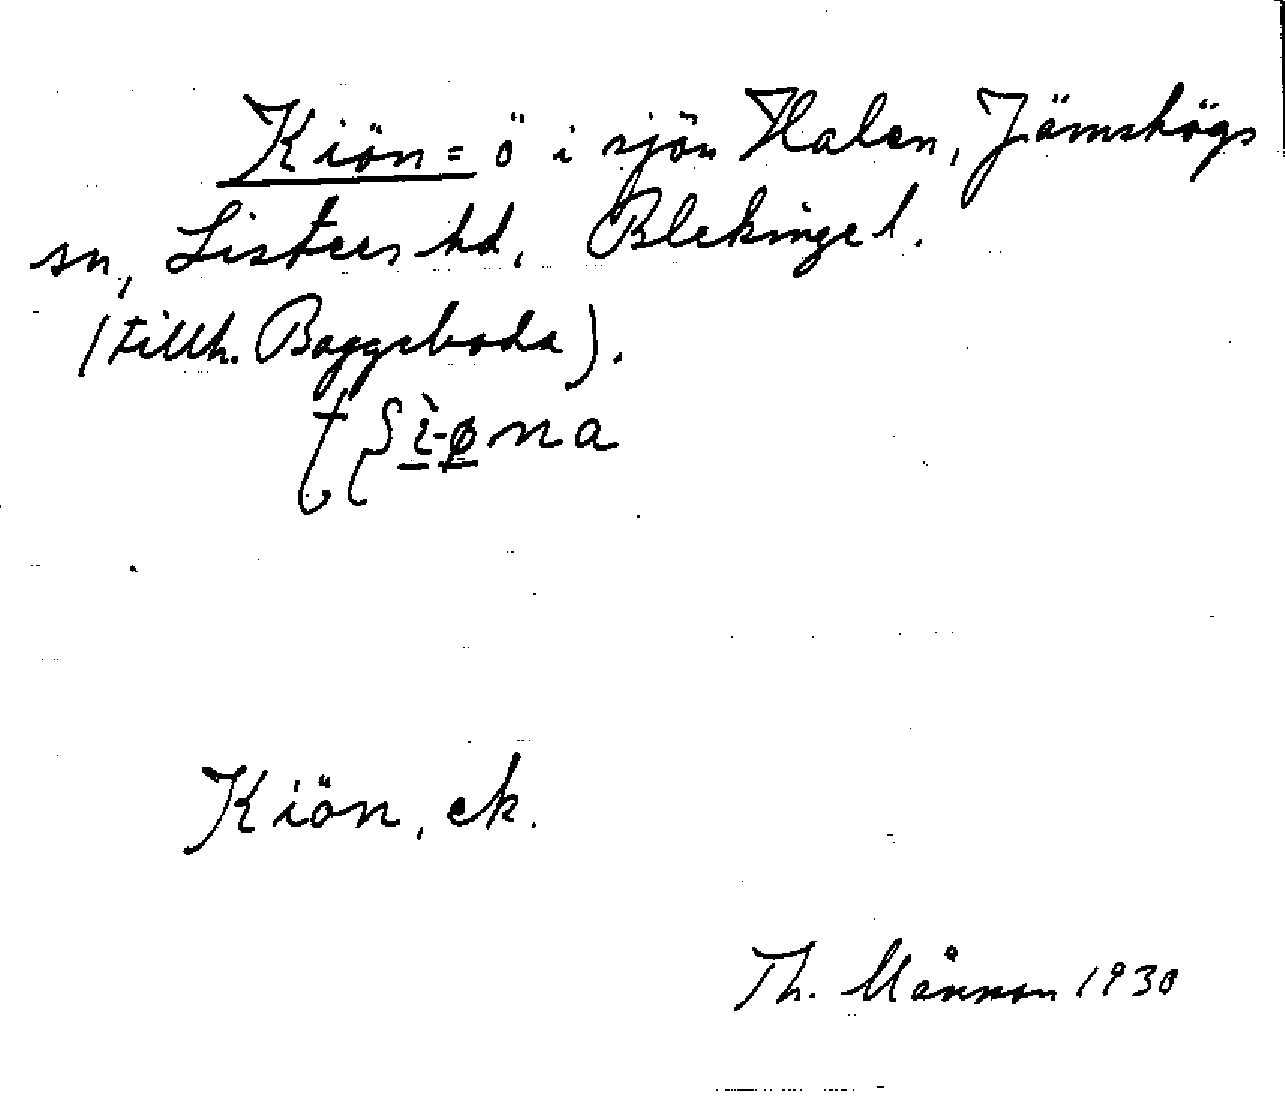 Kiön = ö i sjön Halen, Jämshögs
sn, Listers hd, Blekinge l.
(tillh. Baggeboda).
Kiön, ek.
Th. Månson 1930